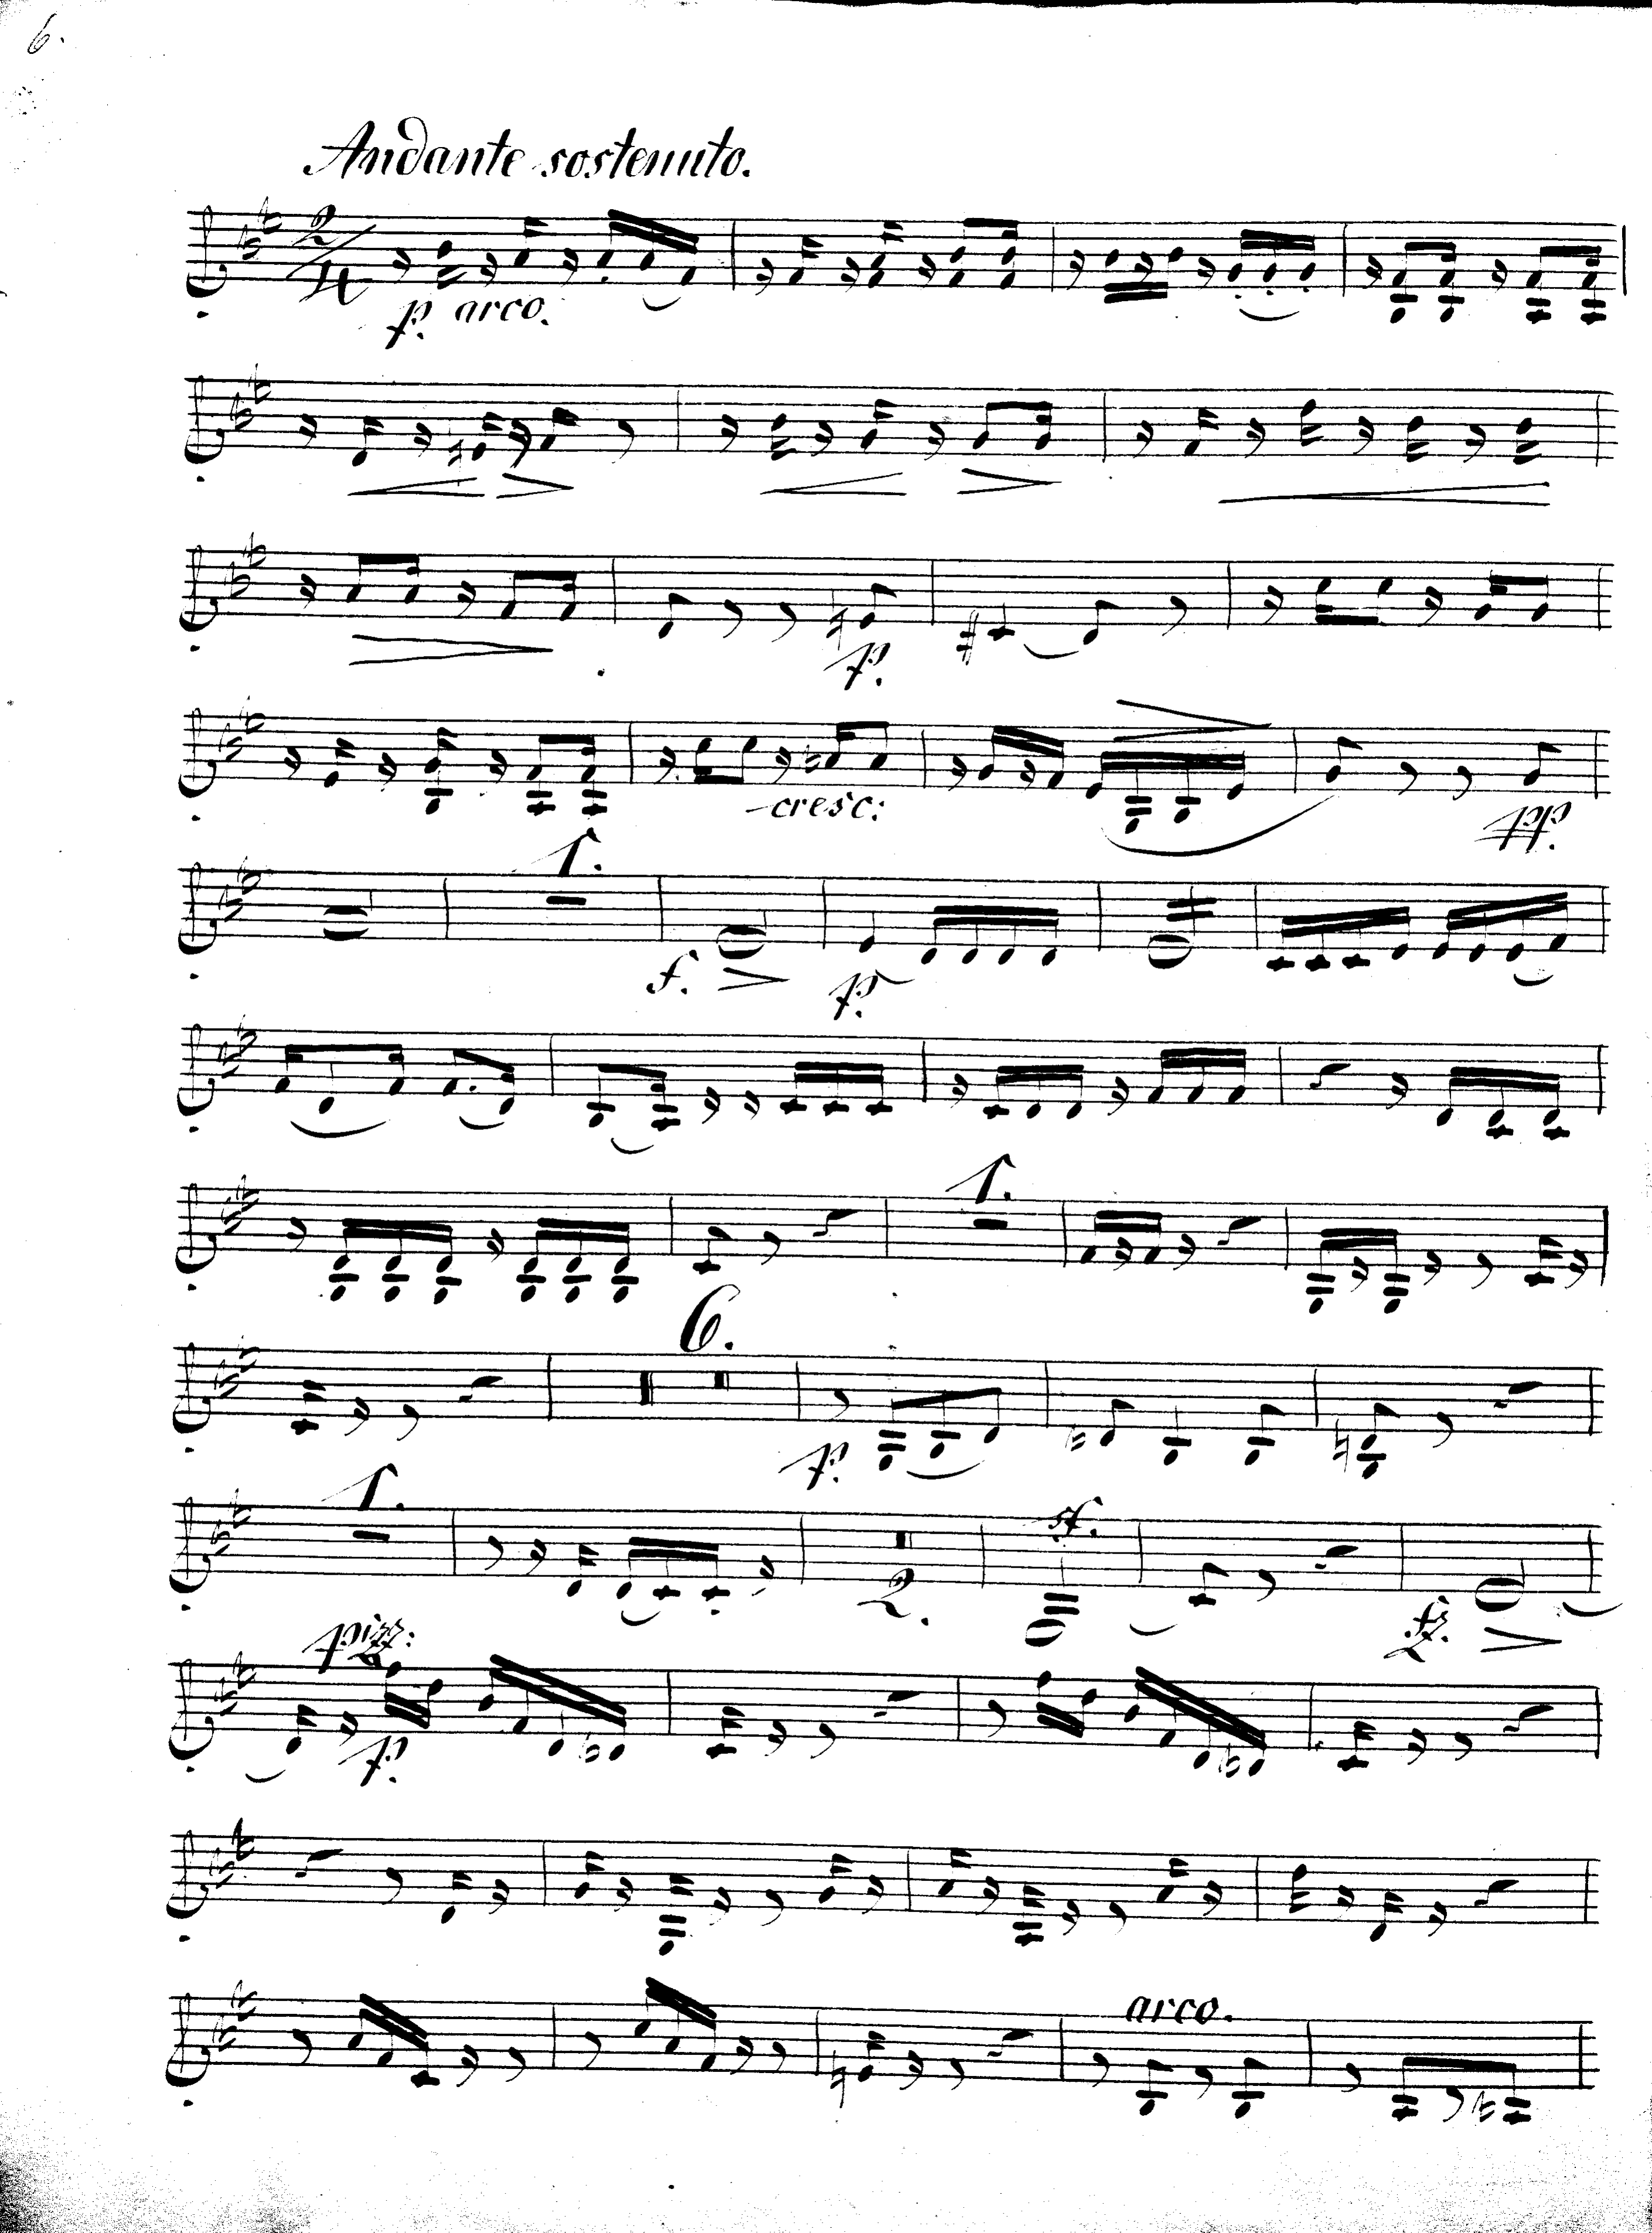 6.
Andante sostenuto.
2/4
p. arco.
p.
cresc:
pp.
1.
f. p.
1.
6.
p.
1.
sf.
2.
fz.
pizz:
p.
arco.